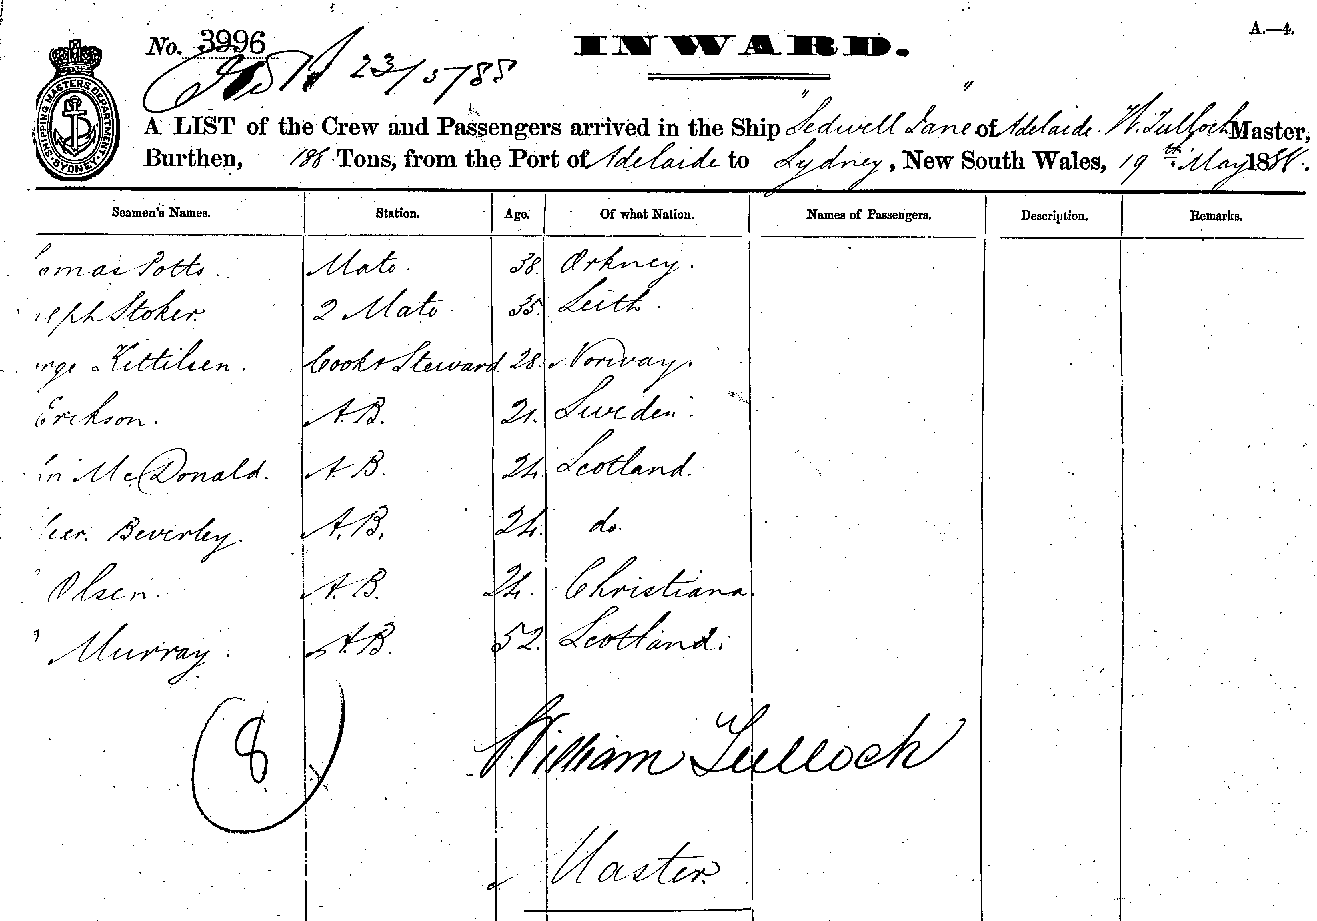 No. 3996
INWARD.
A.—4.
23/5/88
SHIPPING MASTERS DEPARTMENT SYDNEY
A LIST of the Crew and Passengers arrived in the Ship "Sedwell Jane" of Adelaide. W. Tulloch Master,
Burthen, 186 Tons, from the Port of Adelaide to Sydney, New South Wales, 19th May 1888.
Seamen's Names. Station. Age. Of what Nation. Names of Passengers. Description. Remarks.
omas Potts. Mate. 38. Orkney.
eph Stoker 2 Mate 35. Leith.
rge Kittilsen. Cook & Steward 28. Norway.
Erikson. A.B. 21. Sweden.
n McDonald. A.B. 24. Scotland.
Beverley. A.B. 24. do.
Olsen. A.B. 24. Christiana.
Murray. A.B. 52. Scotland.
8
William Tullock
Master